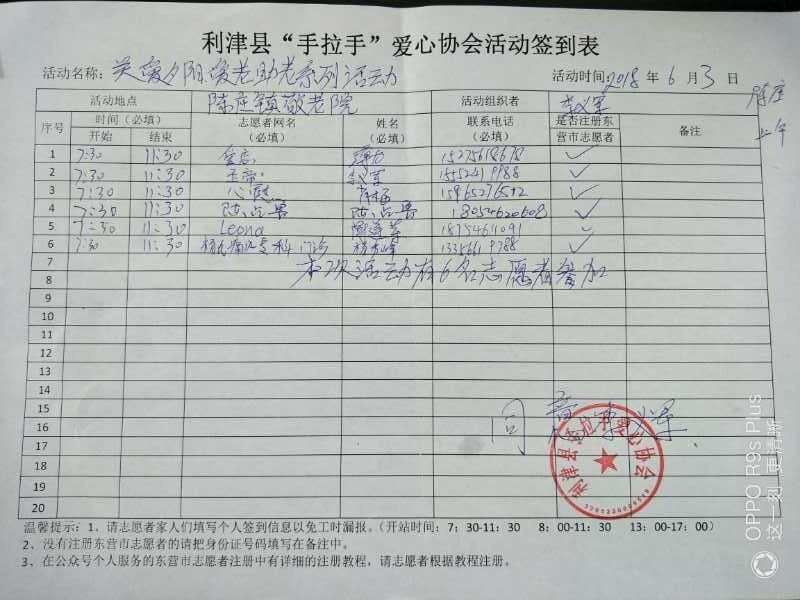 利津县“手拉手”爱心协会活动签到表
活动名称：关爱夕阳爱老助老系列活动 活动时间：2018 年 6 月 3 日
活动地点 陈庄镇敬老院 活动组织者 李义军 陈庄
序号 时间（必填） 志愿者网名（必填） 姓名（必填） 联系电话（必填） 是否注册东营市志愿者 备注 上午
开始 结束
1 7:30 11:30 15275618678 ✓
2 7:30 11:30 ✓
3 7:30 11:30 15965276512 ✓
4 7:30 11:30 18054620608 ✓
5 7:30 11:30 Leona ✓
6 7:30 11:30 ✓
7 本次活动有6名志愿者参加
8
9
10
11
12
13
14
15
16 同意
17
18
19
20
利津县手拉手爱心协会
温馨提示：1、请志愿者家人们填写个人签到信息以免工时漏报。（开站时间：7：30-11：30 8：00-11：30 13：00-17：00）
2、没有注册东营市志愿者的请把身份证号码填写在备注中。
3、在公众号个人服务的东营市志愿者注册中有详细的注册教程，请志愿者根据教程注册。
OPPO R9s Plus
这一刻 更清晰